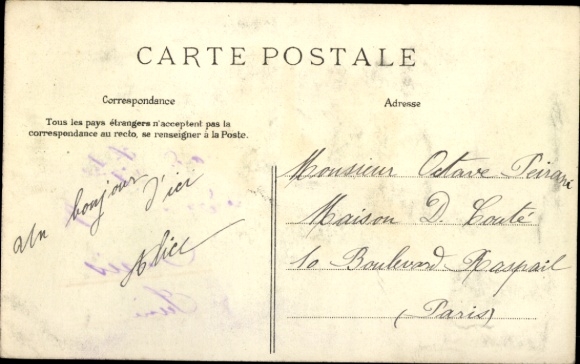 CARTE POSTALE
Correspondance
Tous les pays étrangers n'acceptent pas la
correspondance au recto, se renseigner à la Poste.
Un bonjour d'ici
Alice
Adresse
Monsieur Octave Peirani
Maison D. Couté
10 Boulevard Raspail
(Paris)